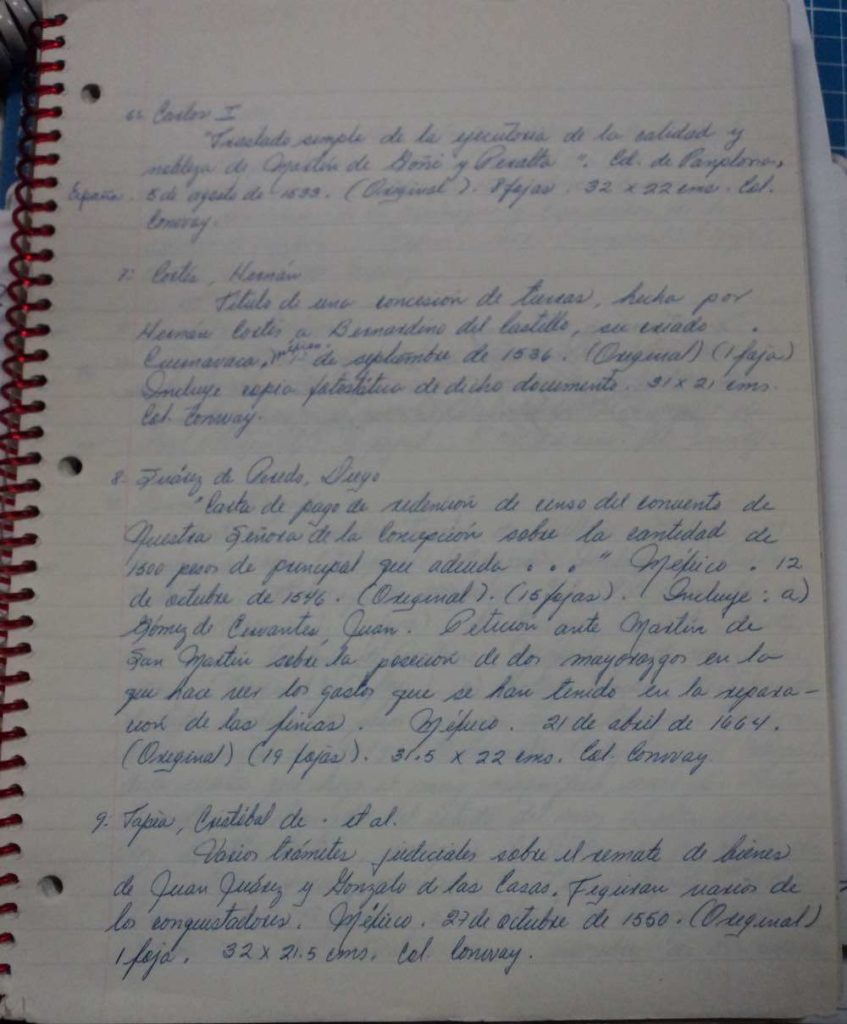 6: Carlos I
"Traslado simple de la ejecutoria de la calidad y
nobleza de Martín de Goñi y Peralta". Cd. de Pamplona,
España. 5 de agosto de 1533. (Original). 8 fojas. 32 x 22 cms. Col.
Conway.
7: Cortés, Hernán
Título de una concesión de tierras, hecha por
Hernán Cortés a Bernardino del Castillo, su criado.
Cuernavaca, México. 1º de septiembre de 1536. (Original) (1 foja)
Incluye copia fotostática de dicho documento. 31 x 21 cms.
Col. Conway.
8- Suárez de Peredo, Diego
"Carta de pago de redención de censo del convento de
Nuestra Señora de la Concepción sobre la cantidad de
1500 pesos de principal que adeuda . . . " México. 12
de octubre de 1546. (Original). (15 fojas). Incluye: a)
Gómez de Cervantes, Juan. Petición ante Martín de
San Martín sobre la posecion de dos mayorazgos en la
que hace ver los gastos que se han tenido en la repara-
ción de las fincas. México. 21 de abril de 1664.
(Original) (19 fojas). 31.5 x 22 cms. Col. Conway
9- Tapia, Cristóbal de. et al.
Varios trámites judiciales sobre el remate de bienes
de Juan Juárez y Gonzalo d las Casas. Figuran varios de
los conquistadores. México. 27 de octubre de 1550. (Original)
1 foja. 32 x 21.5 cms. Col. Conway.